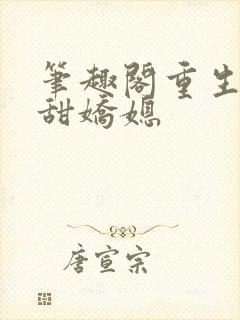 筆趣閣重生
甜嬌媳
唐宣宗